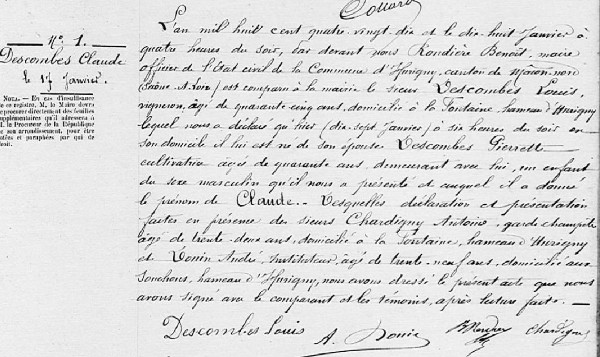 N°. 1.
Descombes Claude
le 17 Janvier.
NOTA. — En cas d'insuffisance
de ce registre, M. le Maire devra
se procurer directement des feuilles
supplémentaires qu'il adressera à
M. le Procureur de la République
de son arrondissement, pour être
cotées et paraphées par qui de
droit.
L'an mil huit cent quatre-vingt-dix et le dix-huit Janvier à
quatre heures du soir, par devant nous Rondière Benoît, maire
officier de l'Etat civil de la Commune d'Hurigny, canton de Mâcon-nord
(Saône & Loire) est comparu à la mairie le sieur Descombes Louis,
vigneron, âgé de quarante-cinq ans, domicilié à la Fontaine, hameau d'Hurigny
lequel nous a déclaré qu'hier (dix-sept Janvier) à six heures du soir en
son domicile il lui est né de son épouse Descombes Pierrette
cultivatrice âgée de quarante ans, demeurant avec lui, un enfant
du sexe masculin qu'il nous a présenté et auquel il a donné
le prénom de Claude. Lesquelles déclaration et présentation
faites en présence des sieurs Chardigny Antoine, garde champêtre
âgé de trente-deux ans, domicilié à la Fontaine, hameau d'Hurigny
et Donin André, instituteur, âgé de trente-neuf ans, domicilié aux
hameau d'Hurigny, nous avons dressé le présent acte que nous
avons signé avec le comparant et les témoins, après lecture faite. —
Descombes Louis A. Donin Chardigny